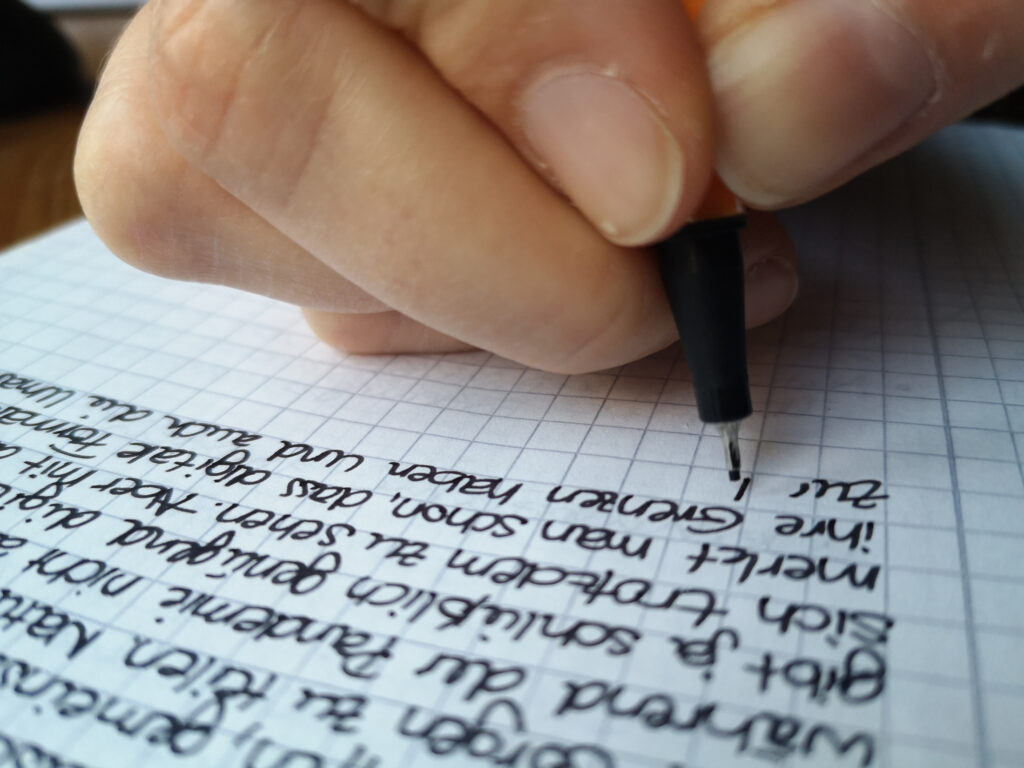 gemeins
Sorgen zu teilen. Natü
während der Pandemie nicht a
gibt ja schließlich genügend digi
sich trotzdem zu sehen. Aber mit
merkt man schon, dass digitale Forma
ihre Grenzen haben und auch die
zur